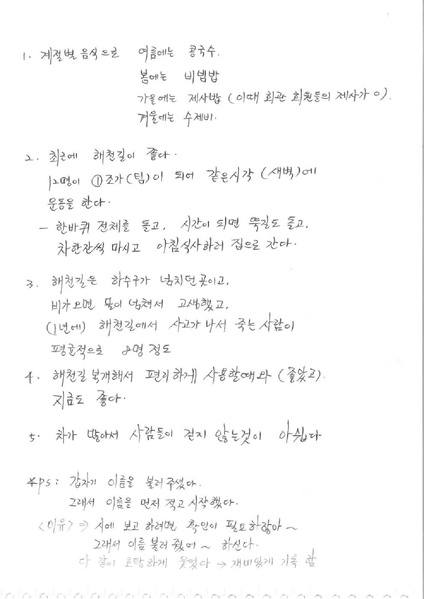 1. 계절별 음식으로 여름에는 콩국수.
봄에는 비빔밥
가을에는 제사밥 (이때 회관 회원들의 제사가 0).
겨울에는 수제비.
2. 최근에 해천길이 좋다.
12명이 ①조가 (팀)이 되어 같은시각 (새벽)에
운동을 한다.
- 한바퀴 전체를 돌고, 시간이 되면 뚝길도 돌고,
차한잔씩 마시고 아침식사하러 집으로 간다.
3. 해천길은 하수구가 넘치던 곳이고,
비가오면 물이 넘쳐서 고생했고,
(1년에) 해천길에서 사고가 나서 죽는 사람이
평균적으로 8명 정도
4. 해천길 복개해서 편리하게 사용할때와 (좋았고)
지금도 좋다.
5. 차가 많아서 사람들이 걷지 않는것이 아쉽다
*PS: 갑자기 이름을 불러 주셨다.
그래서 이름을 먼저 적고 시작했다.
<이유> ⇒ 시에 보고 하려면 확인이 필요하잖아~
그래서 이름 불러 줬어~ 하신다.
다 같이 호탕하게 웃었다 → 재미있게 기록 함